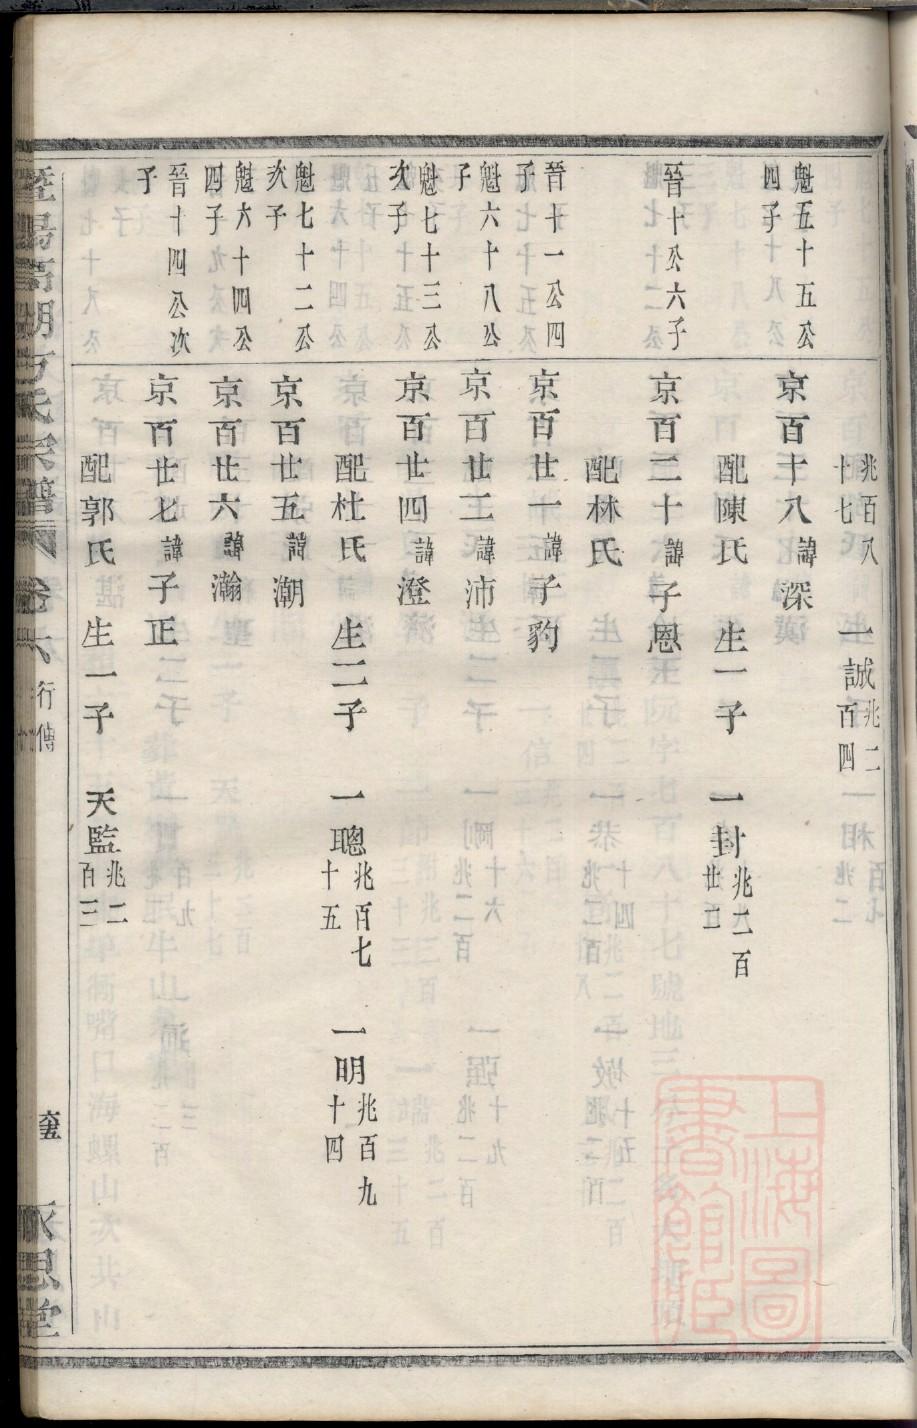 兆百八十七 一誠兆二百四
魁五十五公四子 京百十八諱深
配陳氏 生一子 一封兆二百廿五
晉十公六子 京百二十諱子恩
配林氏
晉十一公四子 京百廿一諱子豹
魁六十八公子 京百廿三諱沛
魁七十三公次子 京百廿四諱澄
配杜氏 生二子 一聰兆百七十五 一明兆百九十四
魁七十二公次子 京百廿五諱潮
魁六十四公四子 京百廿六諱瀚
晉十四公次子 京百廿七諱子正
配郭氏 生一子 天監兆二百三
暨陽高湖方氏宗譜 卷六 行傳 永思堂
上海圖書館藏